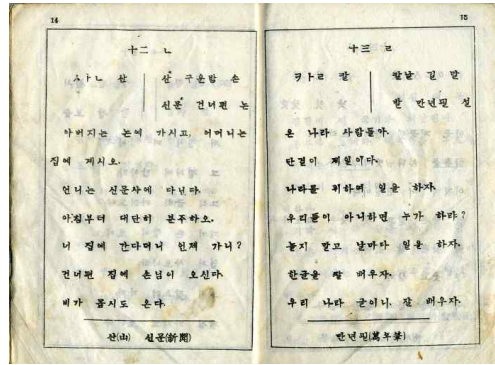 14
十二 ㄴ
ㅅㅏㄴ 산
산 구운밤 손
신문 건너편 논
아버지는 논에 가시고, 어머니는
집에 게시오.
언니는 신문사에 다닌다.
아침부터 대단히 분주하오.
너 집에 간다더니 언제 가니?
건너편 집에 손님이 오신다.
비가 몹시도 온다.
산(山) 신문(新聞)
15
十三 ㄹ
ㅋㅏㄹ 칼
칼날 길 말
발 만년필 설
온 나라 사람들아.
단결이 제일이다.
나라를 위하며 일을 하자.
우리들이 아니하면 누가 하랴?
놀지 말고 날마다 일을 하자.
한글을 잘 배우자.
우리 나라 글이니, 잘 배우자.
만년필(萬年筆)